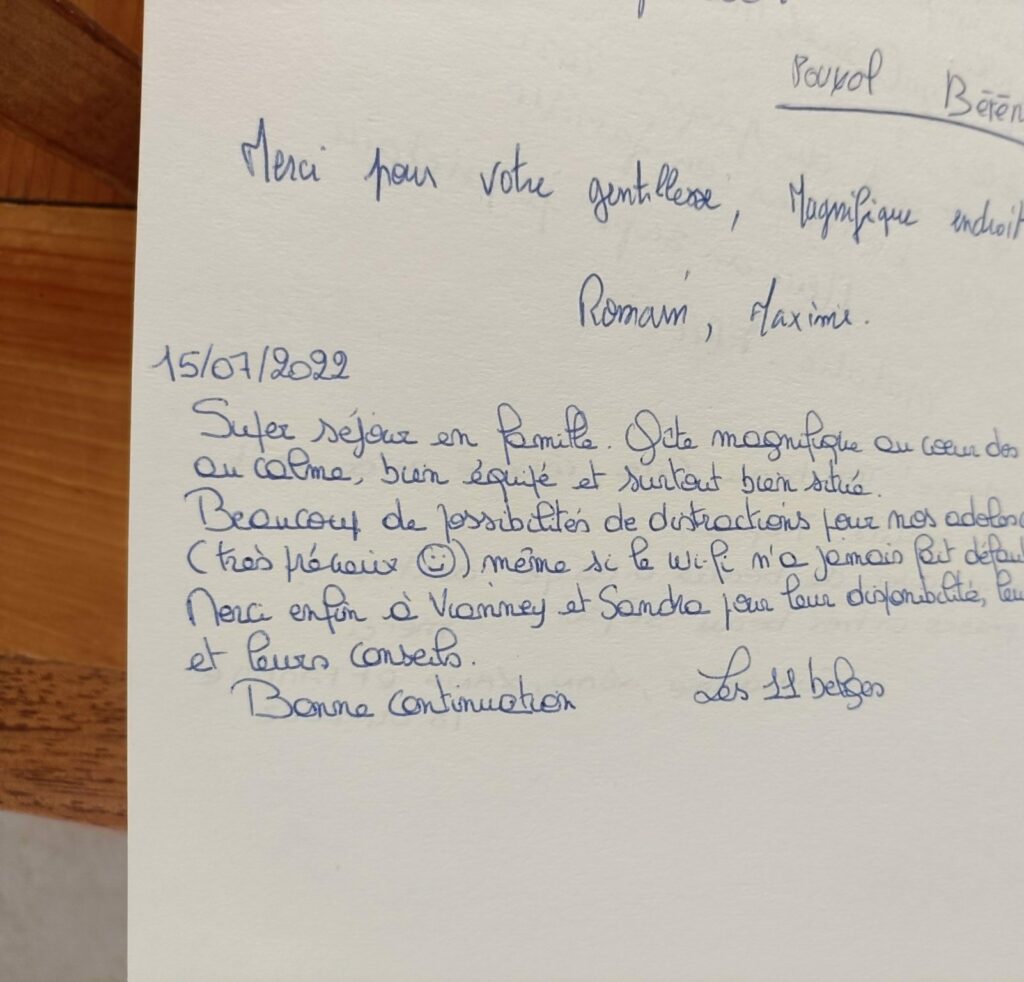 Pouxol Bérén
Merci pour votre gentillesse, Magnifique endroit
Romain, Maxime.
15/07/2022
Super séjour en famille. Gîte magnifique au cœur des
au calme, bien équipé et surtout bien situé.
Beaucoup de possibilités de distractions pour nos adolesc
(très précaux ☺) même si le wi-fi n'a jamais fait défau
Merci enfin à Vianney et Sandra pour leur disponibilité, leu
et leurs conseils.
Bonne continuation Les 11 belges